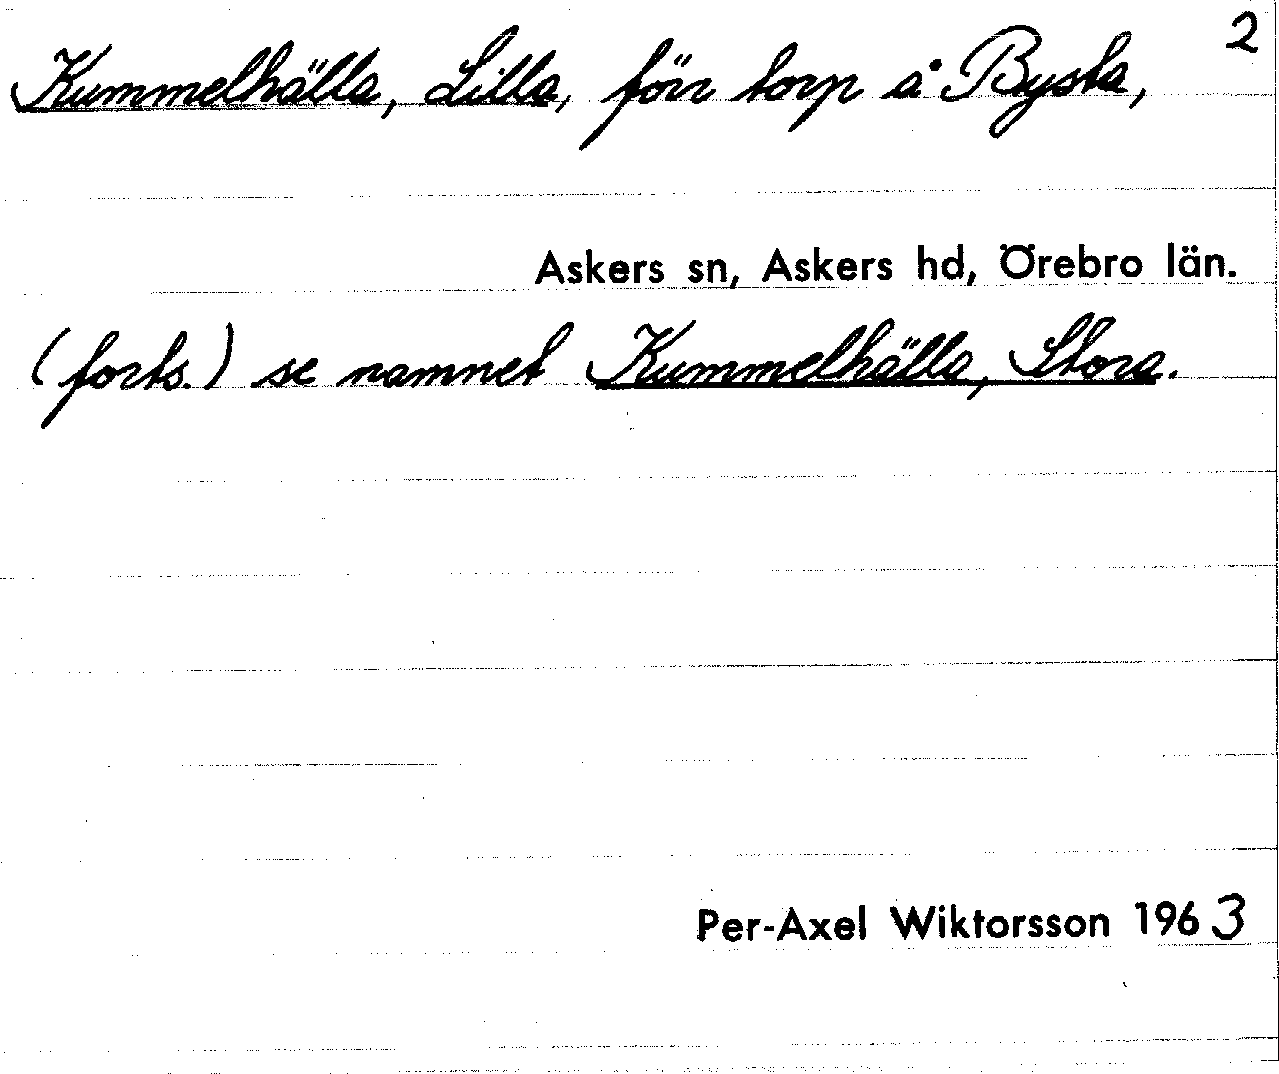 2
Kummelhälla, Lilla, förr torp å Bysta,
Askers sn, Askers hd, Örebro län.
(forts.) se namnet Kummelhälla, Stora.
Per-Axel Wiktorsson 1963